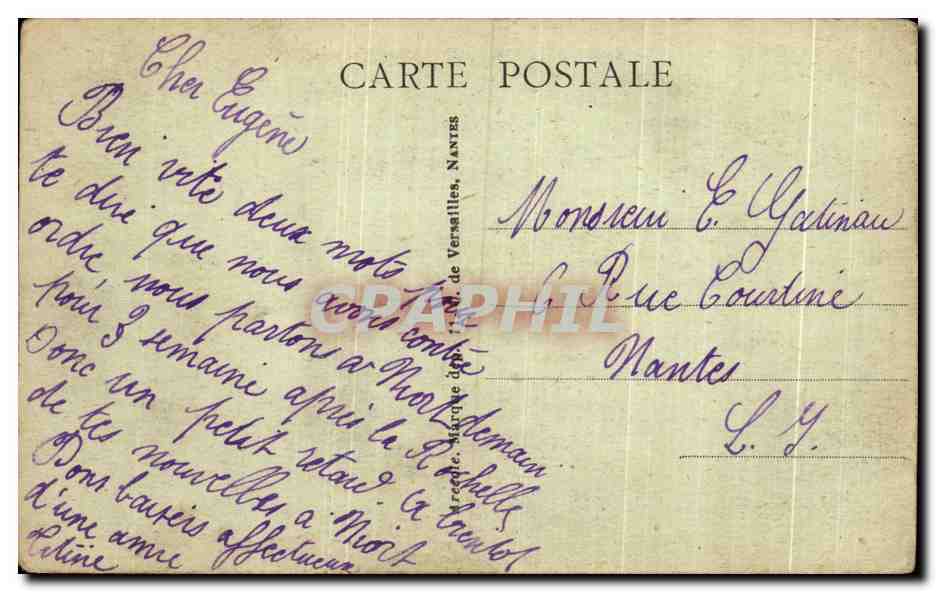 CARTE POSTALE
Cher Eugène
Bien vite deux mots pour
te dire que nous avons contre
ordre nous partons a Niort demain
pour 3 semaine après la Rochelle
Donc un petit retard. a bientot
de tes nouvelles a Niort
Bons baisers affectueux
d'une amie
Titine
de Versailles, NANTES
Monsieur E. Gatineau
6 Rue Courtine
Nantes
L. I.
CPAPHIL